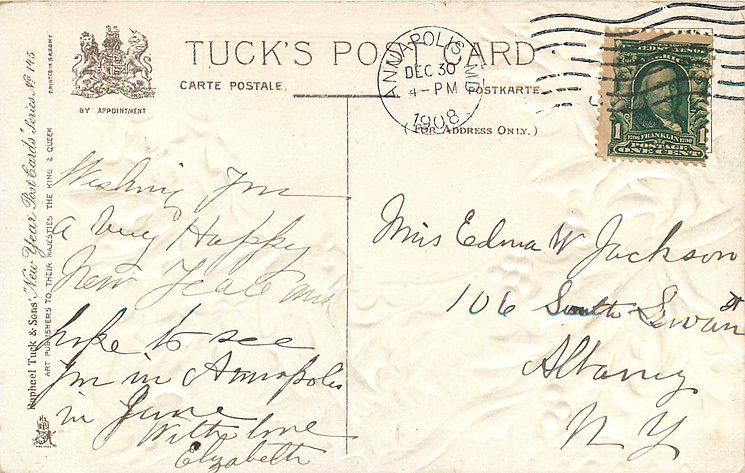 TUCK'S POST CARD
CARTE POSTALE.
POSTKARTE.
(FOR ADDRESS ONLY.)
BY APPOINTMENT
PRINTED IN SAXONY
Raphael Tuck & Sons' "New Year Post Cards" Series No 145
ART PUBLISHERS TO THEIR MAJESTIES THE KING & QUEEN
ANNAPOLIS, MD.
DEC 30
4-PM
1908
1 FRANKLIN 1
POSTAGE
ONE CENT
Wishing you
a very Happy
New Year and
hope to see
you in Annapolis
in June
With love
Elizabeth
Miss Edna W Jackson
106 South Swan St
Albany
N Y